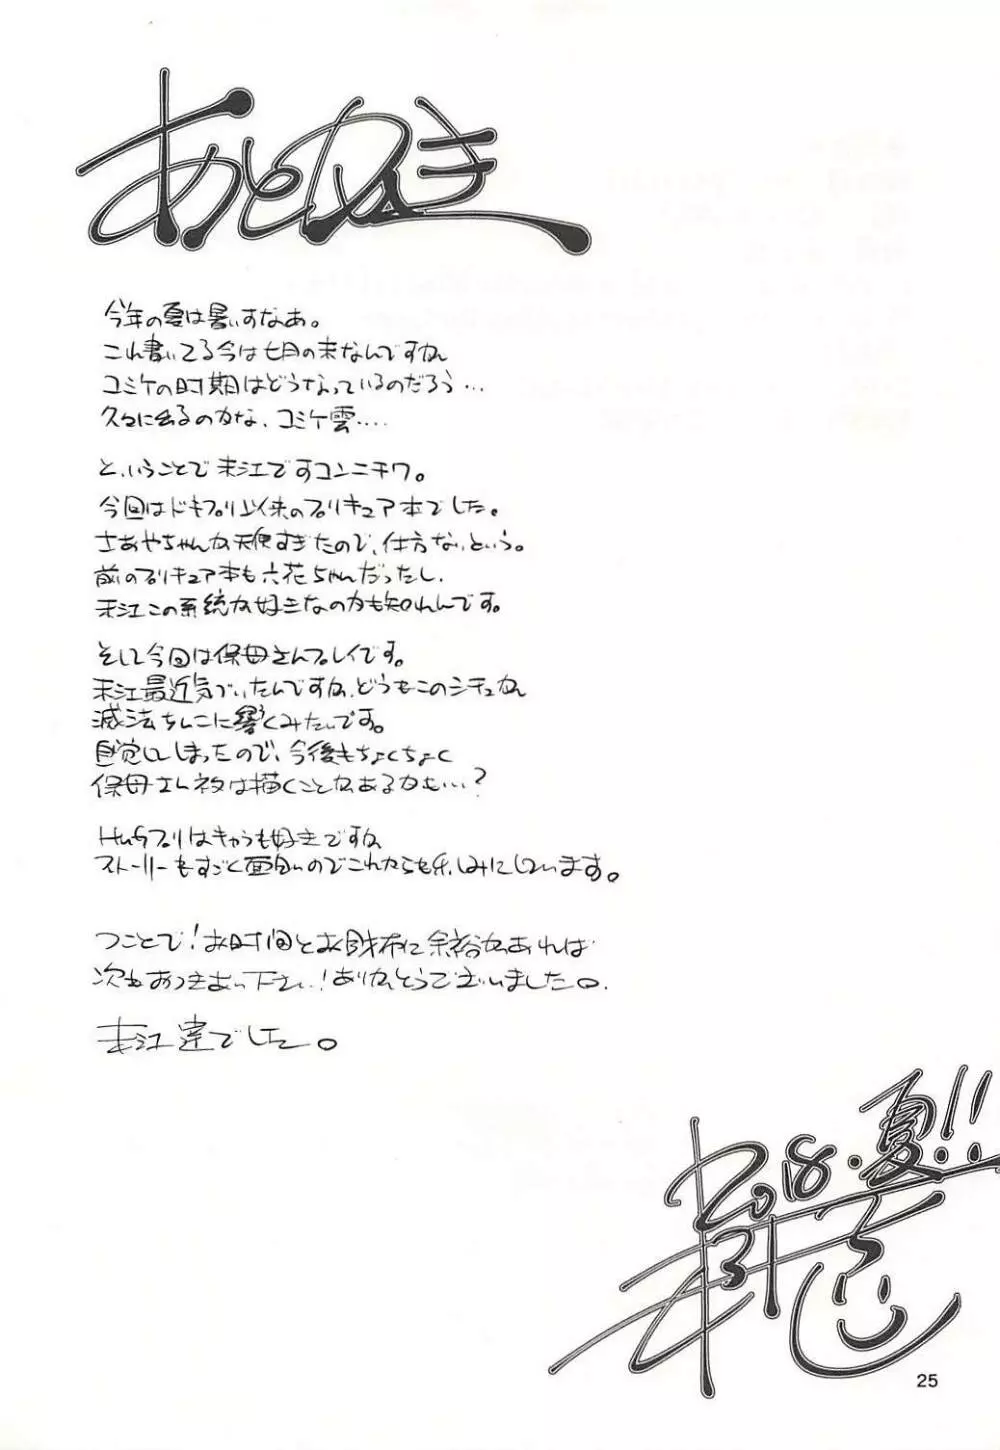 あとがき
今年の夏は暑いすなあ。
これ書いてる今は七月の末なんですがね
コミケの時期はどうなっているのだろう…
久々に出るのかな、コミケ雲….
と、いうことで末江ですコンニチワ。
今回はドキプリ以来のプリキュア本でした。
さあやちゃんが天使すぎたので、仕方ないという。
前のプリキュア本も六花ちゃんだったし、
末江この系統が好きなのかも知れんです。
そして今回は保母さんプレイです。
末江最近気づいたんですが、どうもこのシチュがね
滅法ちんこに響くみたいです。
自覚してしまったので、今後もちょくちょく
保母さんネタは描くことがあるかも…?
Hugプリはキャラも好きですが
ストーリーもすごく面白いのでこれからも楽しみにしています。
つことで!お時間とお財布に余裕があれば
次もおつきあい下さい!ありがとうございました。
末江 達でした。
2018.夏!!
25